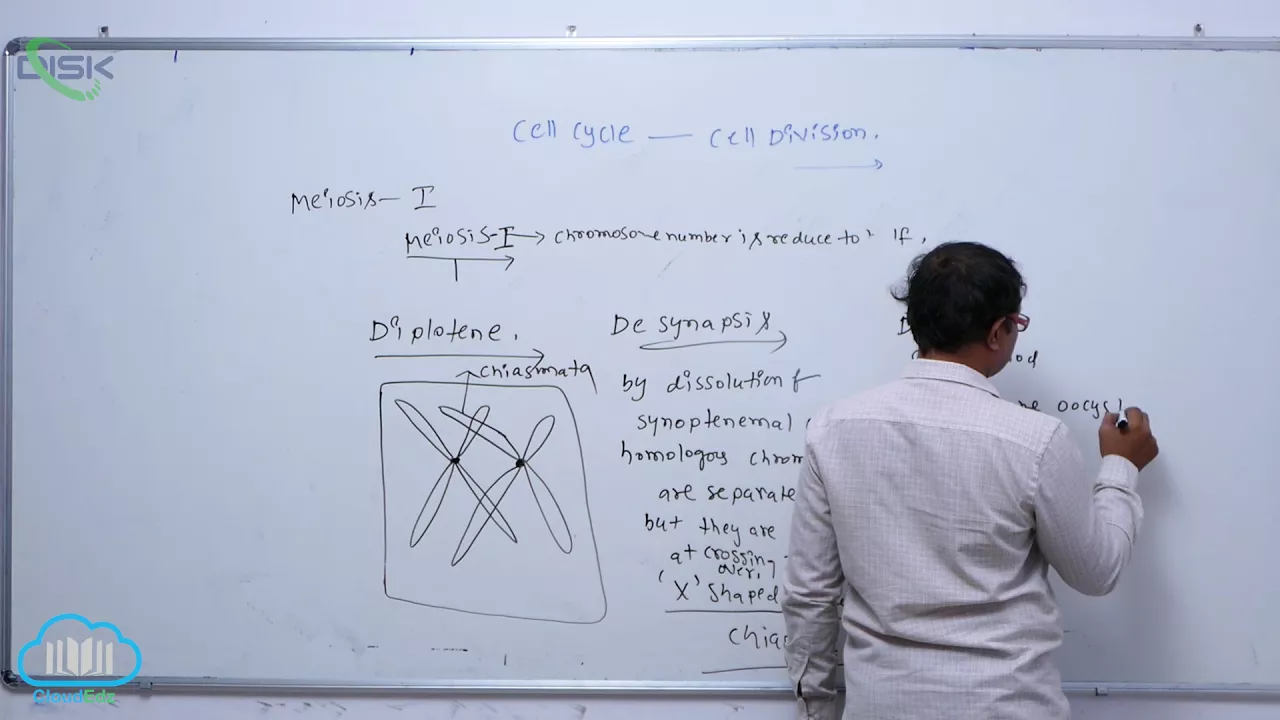 DISK
Cell Cycle — Cell Division.
Meiosis - I
Meiosis-I → chromosome number is reduce to
Diplotene.
chiasmata
De synapsis
by dissolution of
synoptenemal
homologous chrom
are separate
but they are
at crossing
over,
'X' shaped
oocy
CloudEdz